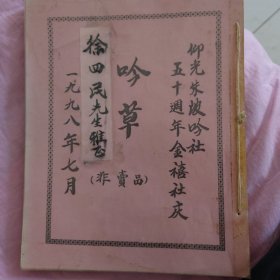 仰光朱波吟社
五十週年金禧社庆
吟草
(非賣品)
徐四民先生雅正
一九九八年七月